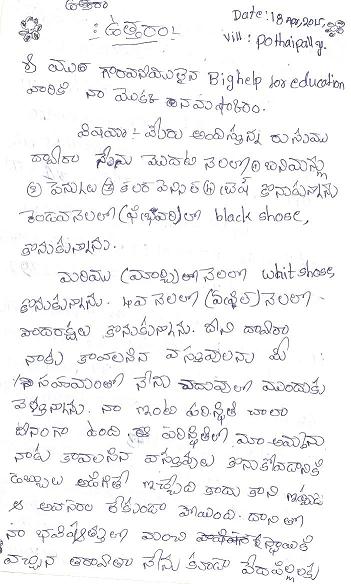 ఉత్తరం
Date: 18 Apr, 2015,
: ఉత్తరం!
Vill: Pothaipally.
శ్రీ మహా గౌరవనీయులైన Bighelp for education
వారికి నా యొక్క నమస్కారం.
విషయం:- మీరు అందిస్తున్న రుసుము
ద్వారా నేను మొదటి నెలలో ① బనియన్లు
② పెన్నులు ③ కలర్ పెన్సిల్ ④ కొనుకున్నాను
రెండవ నెలలో (ఫిబ్రవరి)లో black shose,
కొనుకున్నాను.
మరియు (మార్చి)లో నెలలో whit shose,
కొనుకున్నాను. 4వ నెలలో (ఏప్రిల్) నెలలో
కొనుకున్నాను. దీని ద్వారా
నాకు కావలసిన వస్తువులను మీ
సహాయంతో నేను చదువులో ముందుకు
వెళ్తున్నాను. నా ఇంటి పరిస్థితి చాలా
హీనంగా ఉంది. ఈ పరిస్థితిలో మా అమ్మను
నాకు కావలసిన వస్తువులు కొనుకోవడానికి
డబ్బులు అడిగితే ఇచ్చేది కాదు కాని ఇప్పుడు
ఆ అవసరం లేకుండా పోయింది. దానితో
నా భవిష్యత్తులో మంచి స్థాయికి
వచ్చిన తరువాత నేను కూడా పేదపిల్లలకు